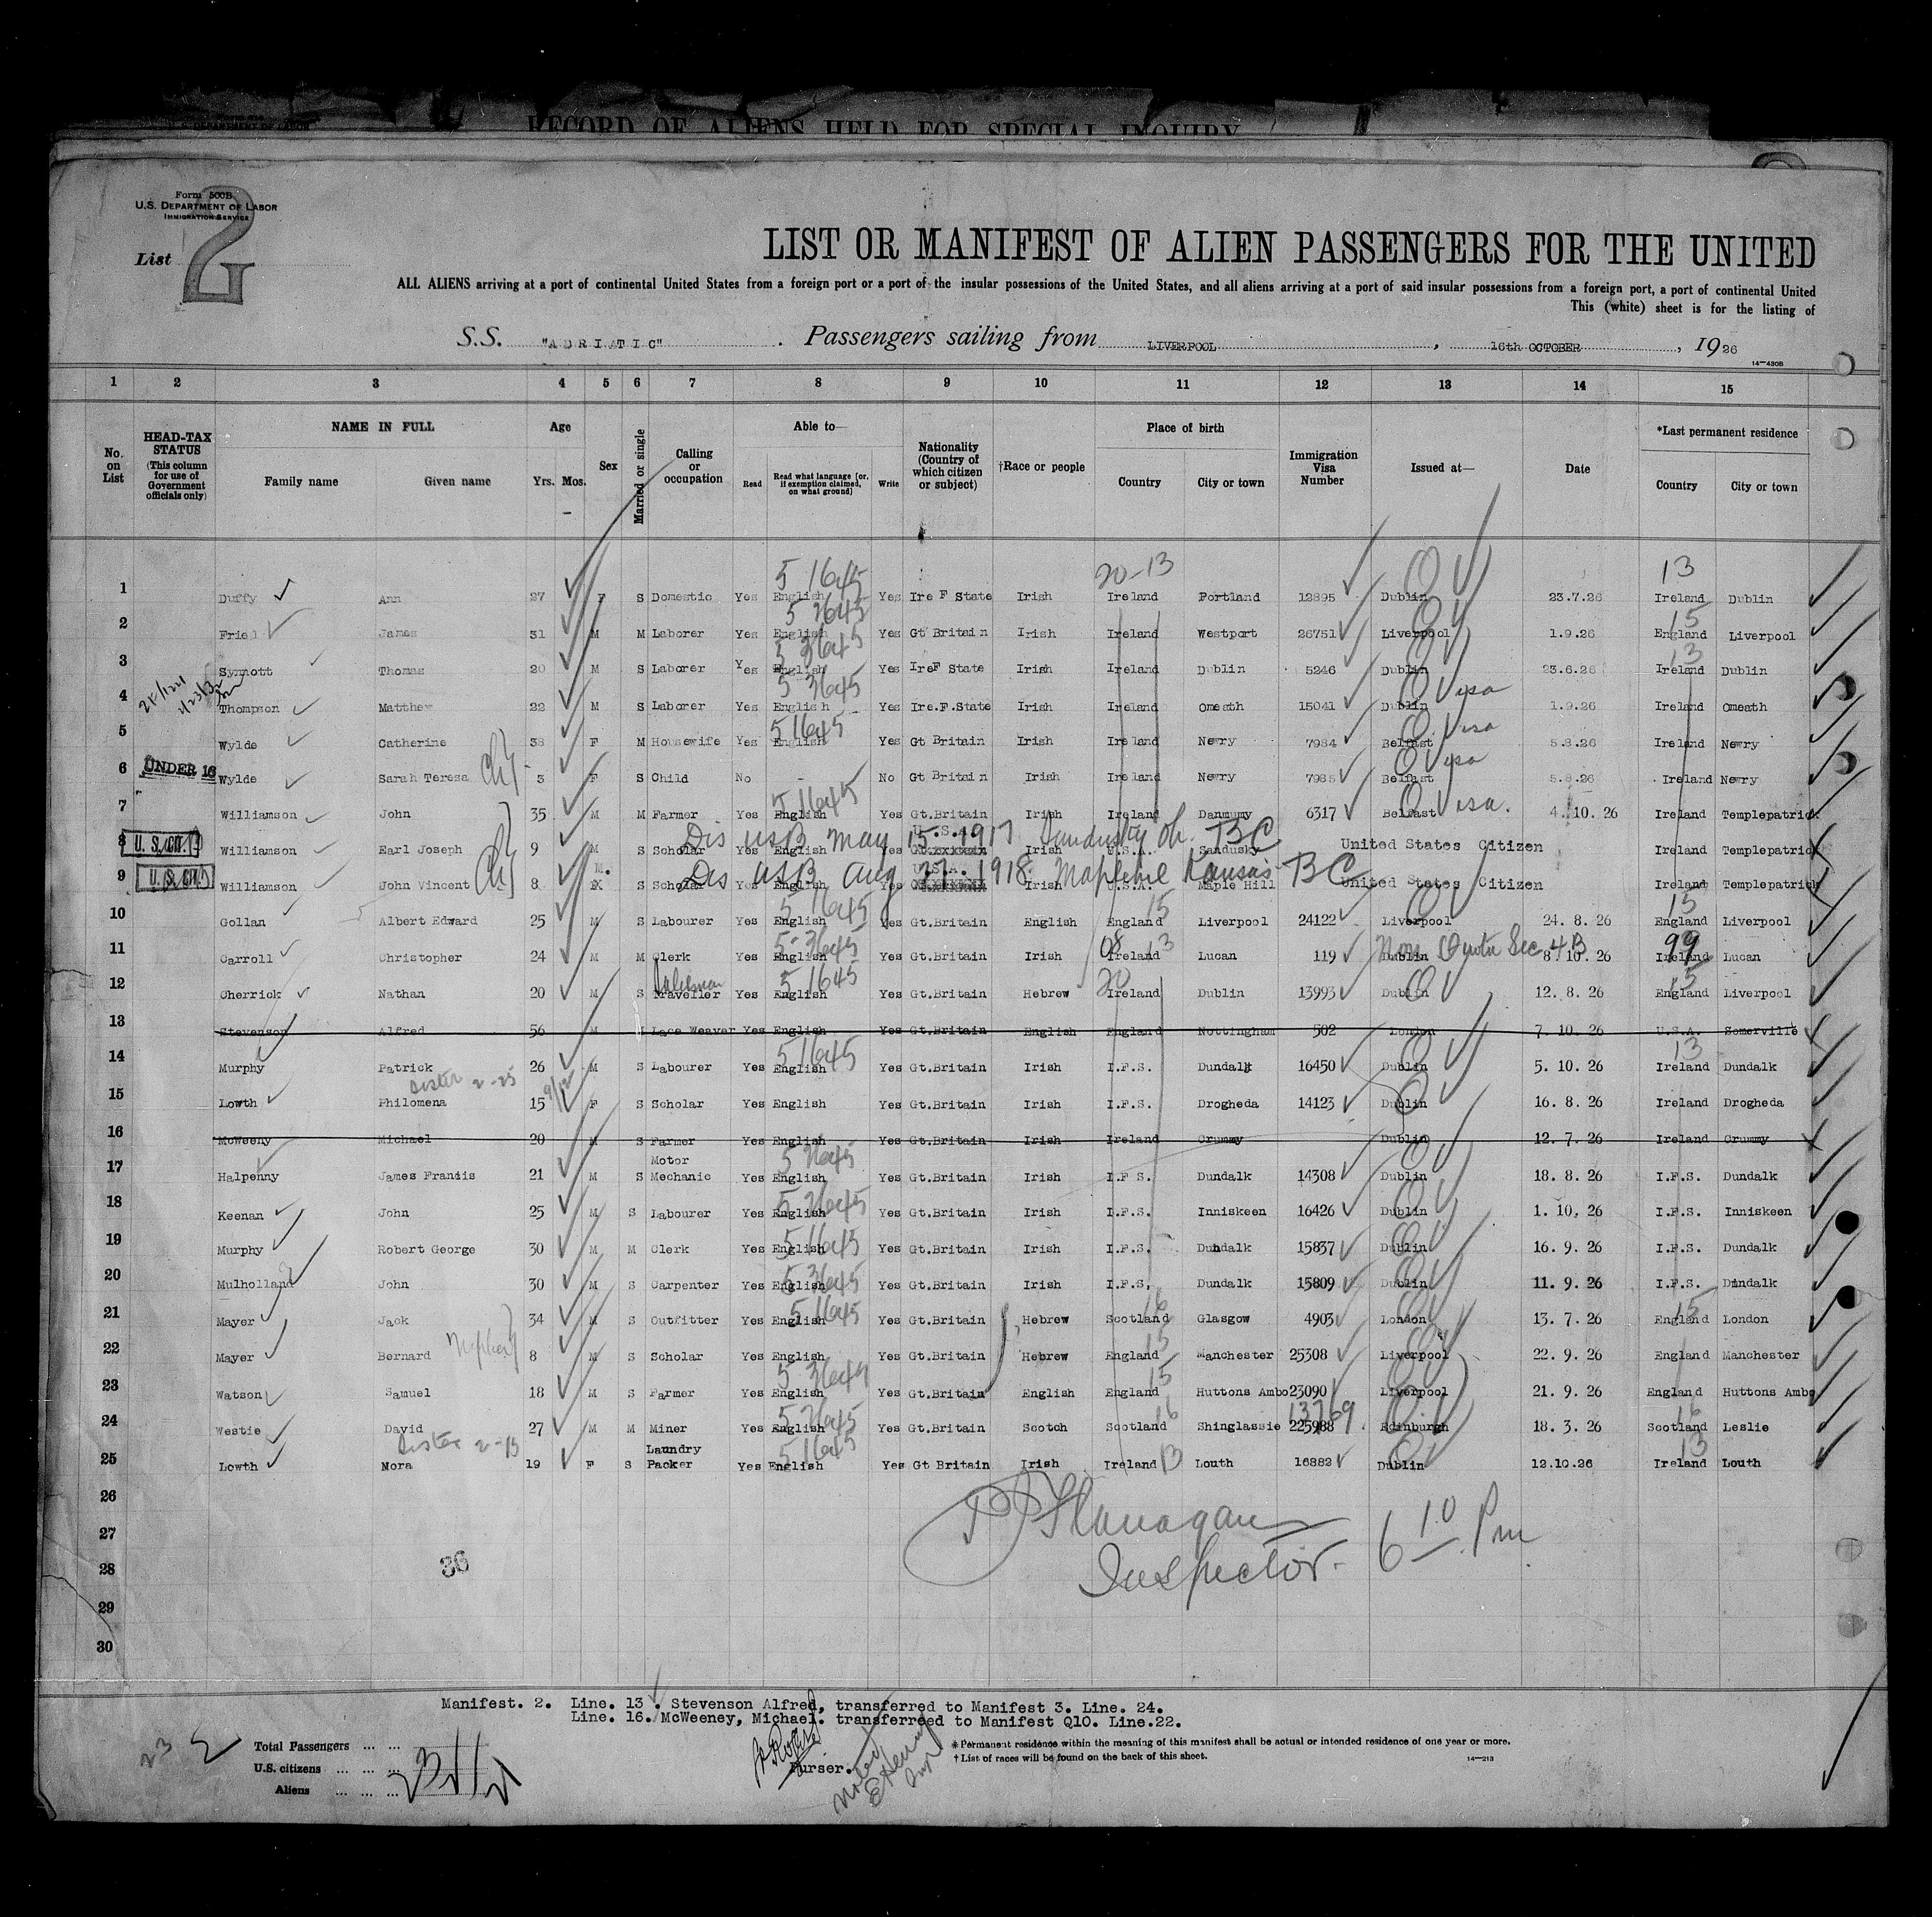 RECORD OF ALIENS HELD FOR SPECIAL INQUIRY
Form 500B
U.S. DEPARTMENT OF LABOR
IMMIGRATION SERVICE
List 2
LIST OR MANIFEST OF ALIEN PASSENGERS FOR THE UNITED
ALL ALIENS arriving at a port of continental United States from a foreign port or a port of the insular possessions of the United States, and all aliens arriving at a port of said insular possessions from a foreign port, a port of continental United
This (white) sheet is for the listing of
S.S. "ADRIATIC" . Passengers sailing from LIVERPOOL , 16th OCTOBER , 1926
14—430B
1 2 3 4 5 6 7 8 9 10 11 12 13 14 15
No. on List
HEAD-TAX STATUS (This column for use of Government officials only)
NAME IN FULL
Family name Given name
Age
Yrs. Mos.
Sex
Married or single
Calling or occupation
Able to—
Read Read what language (or, if exemption claimed, on what ground) Write
Nationality (Country of which citizen or subject)
†Race or people
Place of birth
Country City or town
Immigration Visa Number
Issued at—
Date
*Last permanent residence
Country City or town
5 1645 20-13 QV 13
1 Duffy Ann 27 F S Domestic Yes English Yes Ire F State Irish Ireland Portland 12895 Dublin 23.7.26 Ireland Dublin
5 2645 QV 15
2 Friel James 31 M M Laborer Yes English Yes Gt Britain Irish Ireland Westport 26751 Liverpool 1.9.26 England Liverpool
5 3645 QV 13
3 Synnott Thomas 20 M S Laborer Yes English Yes IreF State Irish Ireland Dublin 5246 Dublin 23.6.26 Ireland Dublin
5 3645 Q Visa
4 Thompson Matthew 22 M S Laborer Yes English Yes Ire.F.State Irish Ireland Omeath 15041 Dublin 1.9.26 Ireland Omeath
5 1645 Q Visa
5 Wylde Catherine 38 F M Housewife Yes English Yes Gt Britain Irish Ireland Newry 7984 Belfast 5.8.26 Ireland Newry
Q Visa
6 UNDER 16 Wylde Sarah Teresa Ch 3 F S Child No - No Gt Britain Irish Ireland Newry 7985 Belfast 5.8.26 Ireland Newry
5 1645 Q Visa.
7 Williamson John 35 M M Farmer Yes English Yes Gt.Britain Irish Ireland Danmumy 6317 Belfast 4. 10. 26 Ireland Templepatrick
Dis USB May 15. 1917 Sandusky Oh. BC
8 U.S. CIT. Williamson Earl Joseph 9 M S Scholar Yes English Yes U.S.A. Irish U.S.A. Sandusky United States Citizen Ireland Templepatrick
Dis USB Aug 27. 1918. Maplehill Kansas BC
9 U.S. CIT. Williamson John Vincent Ch 8 M. S Scholar Yes English Yes U.S.A. Irish U.S.A. Maple Hill United States Citizen Ireland Templepatrick
5 1645 15 QV 15
10 Gollan Albert Edward 25 M S Labourer Yes English Yes Gt.Britain English England Liverpool 24122 Liverpool 24. 8. 26 England Liverpool
5-3645 08 13 Non Quota Sec 4B 99
11 Carroll Christopher 24 M M Clerk Yes English Yes Gt.Britain Irish Ireland Lucan 119 Dublin 8. 10. 26 Ireland Lucan
Salesman 5 1645 20 QV 15
12 Cherrick Nathan 20 M S Traveller Yes English Yes Gt.Britain Hebrew Ireland Dublin 13993 Dublin 12. 8. 26 England Liverpool
13 Stevenson Alfred 56 M M Lace Weaver Yes English Yes Gt.Britain English England Nottingham 502 London 7. 10. 26 U.S.A. Somerville
5 1645 QV 13
14 Murphy Patrick 26 M S Labourer Yes English Yes Gt.Britain Irish I.F.S. Dundalk 16450 Dublin 5. 10. 26 Ireland Dundalk
Sister 2-25 9/12
15 Lowth Philomena 15 F S Scholar Yes English Yes Gt.Britain Irish I.F.S. Drogheda 14123 Dublin 16. 8. 26 Ireland Drogheda
16 McWeeny Michael 20 M S Farmer Yes English Yes Gt.Britain Irish Ireland Crummy Dublin 12. 7. 26 Ireland Crummy
5 2645 QV
17 Halpenny James Francis 21 M S Motor Mechanic Yes English Yes Gt.Britain Irish I.F S. Dundalk 14308 Dublin 18. 8. 26 I.F.S. Dundalk
5 2645 QV
18 Keenan John 25 M S Labourer Yes English Yes Gt.Britain Irish I.F.S. Inniskeen 16426 Dublin 1. 10. 26 I.F.S. Inniskeen
5 1645 QV
19 Murphy Robert George 30 M M Clerk Yes English Yes Gt.Britain Irish I.F.S. Dundalk 15837 Dublin 16. 9. 26 I.F.S. Dundalk
5 3645 QV
20 Mulholland John 30 M S Carpenter Yes English Yes Gt.Britain Irish I.F.S, Dundalk 15809 Dublin 11. 9. 26 I.F.S. Dundalk
5 1645 16 QV 15
21 Mayer Jack 34 M S Outfitter Yes English Yes Gt.Britain Hebrew Scotland Glasgow 4903 London 13. 7. 26 England London
15 QV
22 Mayer Bernard Nephew 8 M S Scholar Yes English Yes Gt.Britain Hebrew England Manchester 25308 Liverpool 22. 9. 26 England Manchester
5 3644 15 QV
23 Watson Samuel 18 M S Farmer Yes English Yes Gt.Britain English England Huttons Ambo 23090 Liverpool 21. 9. 26 England Huttons Ambo
5 2645 16 13769 QV 16
24 Westie David 27 M M Miner Yes English Yes Gt.Britain Scotch Scotland Shinglassie 225988 Edinburgh 18. 3. 26 Scotland Leslie
Sister 2-15 5 1645 QV 13
25 Lowth Nora 19 F S Laundry Packer Yes English Yes Gt Britain Irish Ireland 13 Louth 16882 Dublin 12.10.26 Ireland Louth
26
27
28
29
30
P J Flanagan
Inspector. 6 10 Pm
36
Manifest. 2. Line. 13. Stevenson Alfred, transferred to Manifest 3. Line. 24.
Line. 16. McWeeney, Michael. transferred to Manifest Q10. Line.22.
23 2
Total Passengers ... ...
U.S. citizens ... ... ...
Aliens ... ... ...
Purser.
* Permanent residence within the meaning of this manifest shall be actual or intended residence of one year or more.
† List of races will be found on the back of this sheet.
14—213